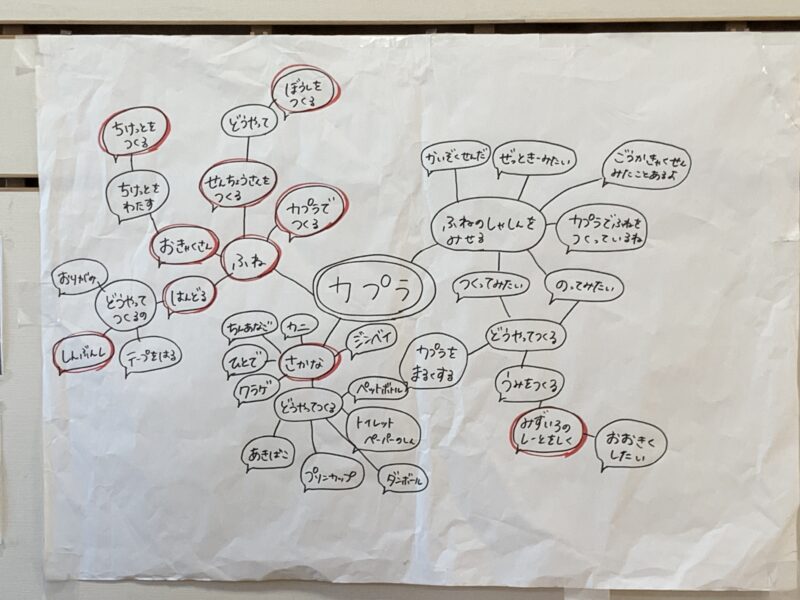 カプラ
ふね
カプラで
つくる
せんちょうさんを
つくる
どうやって
ぼうしを
つくる
おきゃくさん
ちけっとを
わたす
ちけっとを
つくる
はんどる
どうやって
つくるの
おりがみ
しんぶんし
テープをはる
さかな
ちんあなご
カニ
ジンベイ
ひとで
クラゲ
どうやってつくる
ペットボトル
トイレット
ペーパーのしん
ダンボール
プリンカップ
あきばこ
ふねのしゃしんを
みせる
かいぞくせんだ
ぜっときーみたい
ごうかきゃくせん
みたことあるよ
カプラでふねを
つくっているね
つくってみたい
のってみたい
どうやってつくる
カプラを
まるくする
うみをつくる
みずいろの
しーとをしく
おおきく
したい